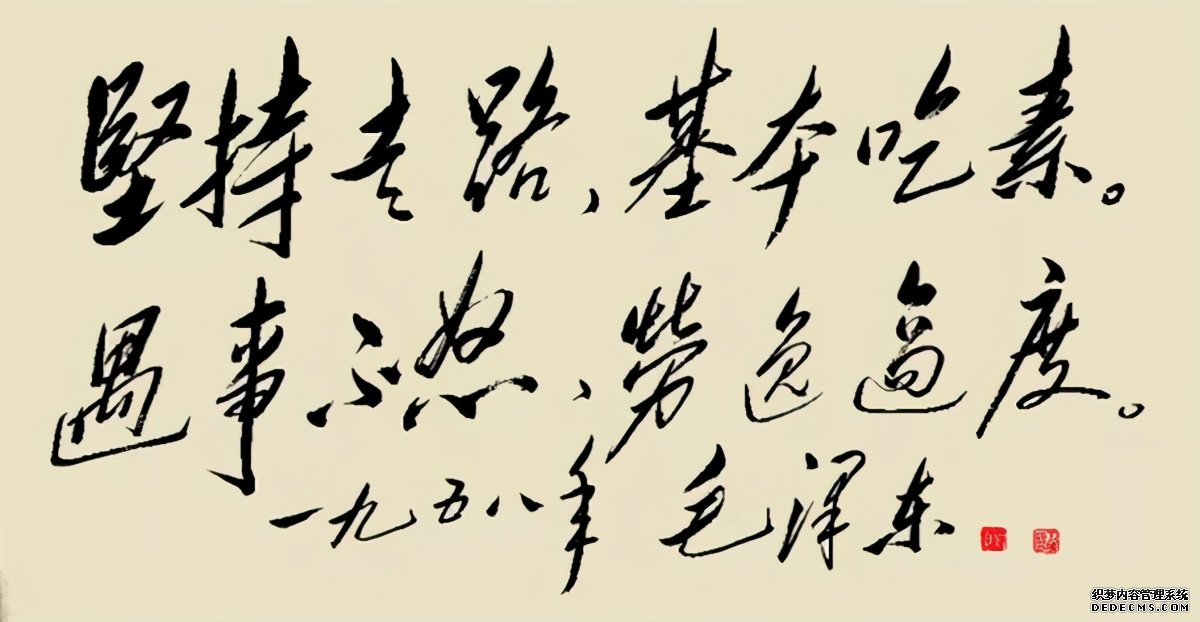 堅持走路、基本吃素。
遇事不怒、勞逸適度。
一九五八年 毛泽东
织梦内容管理系统
DEDECMS.COM